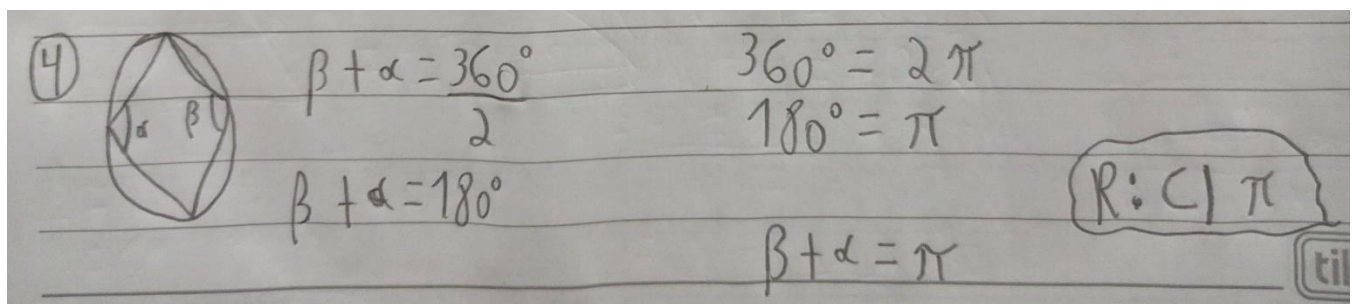 4
α β
β + α = 360°/2
β + α = 180°
360° = 2π
180° = π
β + α = π
R: C) π
til